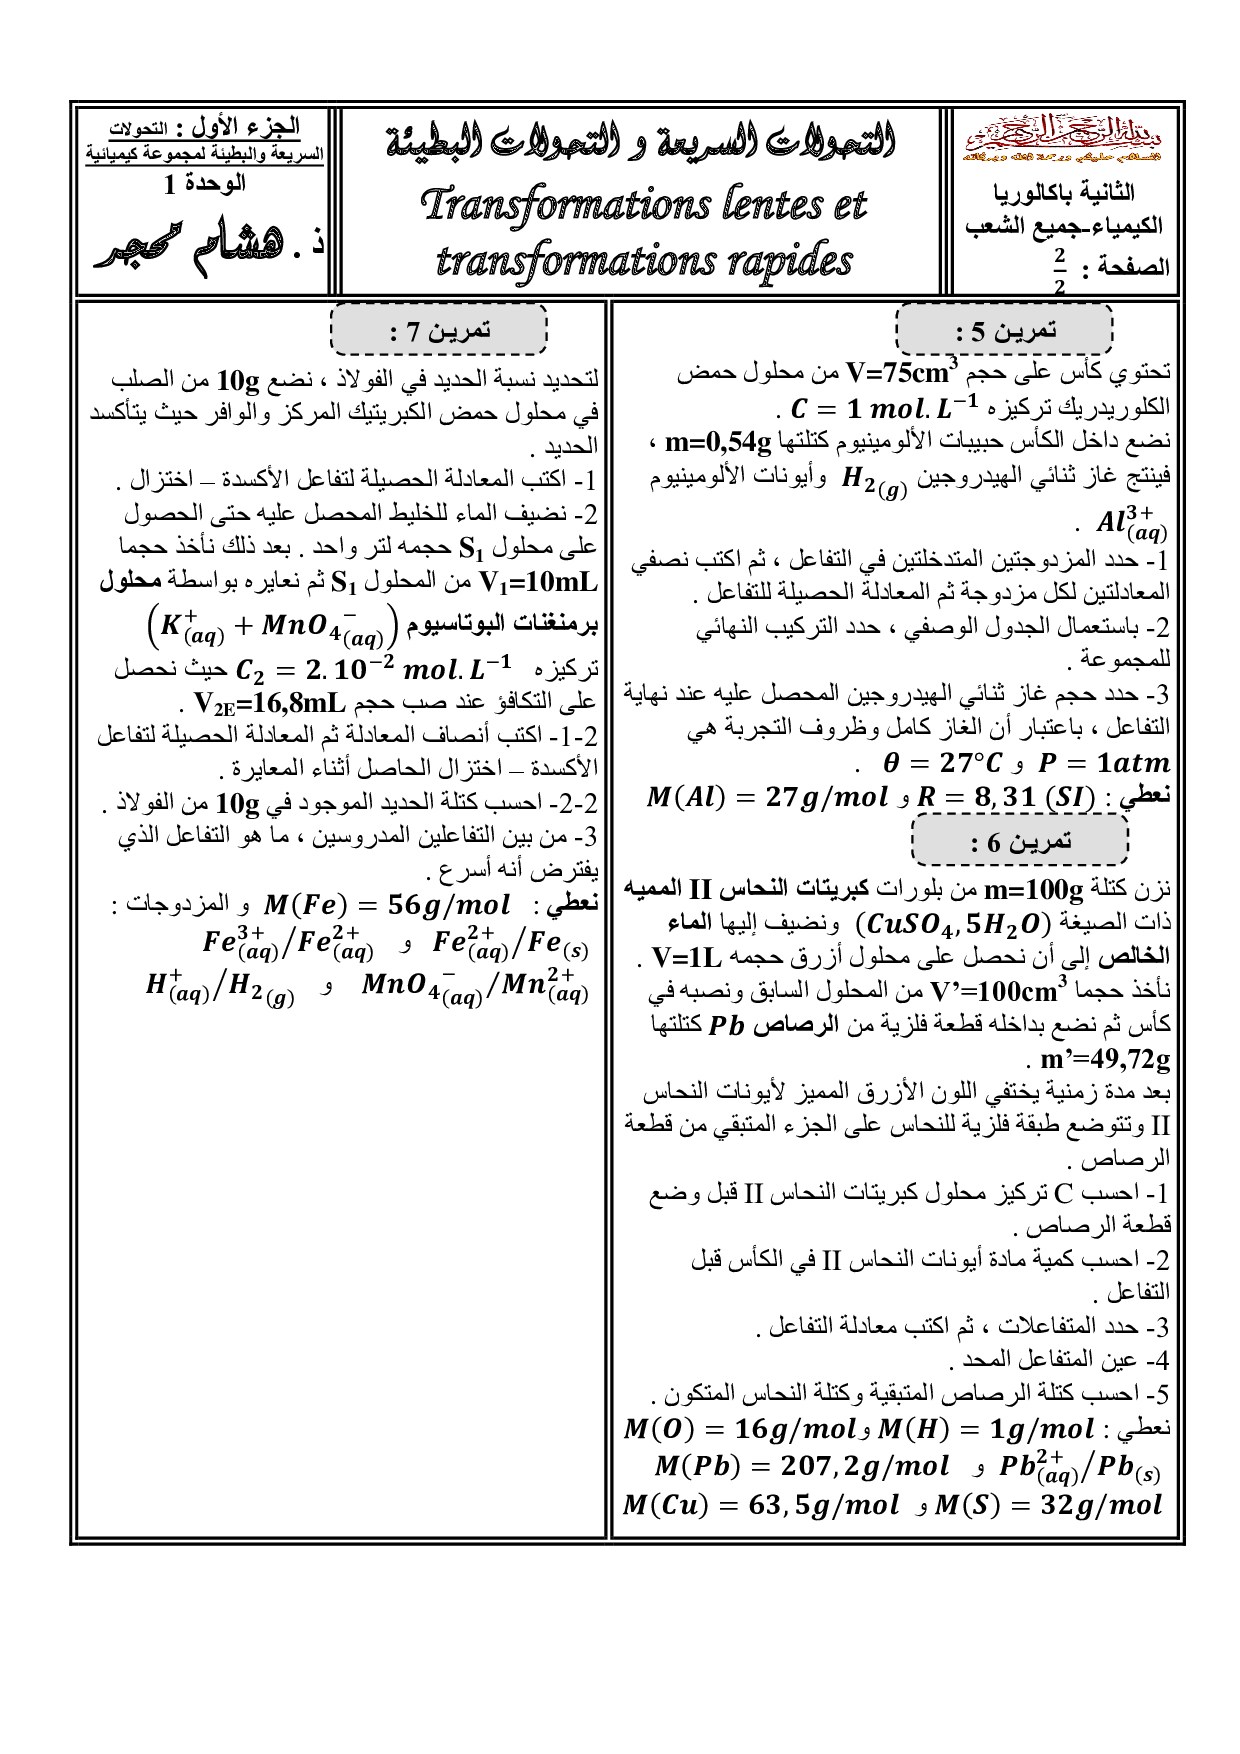 بسم الله الرحمن الرحيم
السلام عليكم ورحمة الله وبركاته
الثانية باكالوريا
الكيمياء-جميع الشعب
الصفحة : 2/2
التحولات السريعة و التحولات البطيئة
Transformations lentes et
transformations rapides
الجزء الأول : التحولات
السريعة والبطيئة لمجموعة كيميائية
الوحدة 1
ذ . هشام محجر
تمرين 5 :
تحتوي كأس على حجم V=75cm³ من محلول حمض
الكلوريدريك تركيزه C = 1 mol. L⁻¹ .
نضع داخل الكأس حبيبات الألومينيوم كتلتها m=0,54g ،
فينتج غاز ثنائي الهيدروجين H₂(g) وأيونات الألومينيوم
Al³⁺(aq) .
1- حدد المزدوجتين المتدخلتين في التفاعل ، ثم اكتب نصفي
المعادلتين لكل مزدوجة ثم المعادلة الحصيلة للتفاعل .
2- باستعمال الجدول الوصفي ، حدد التركيب النهائي
للمجموعة .
3- حدد حجم غاز ثنائي الهيدروجين المحصل عليه عند نهاية
التفاعل ، باعتبار أن الغاز كامل وظروف التجربة هي
P = 1atm و θ = 27°C .
نعطي : R = 8,31 (SI) و M(Al) = 27g/mol
تمرين 6 :
نزن كتلة m=100g من بلورات كبريتات النحاس II المميه
ذات الصيغة (CuSO₄, 5H₂O) ونضيف إليها الماء
الخالص إلى أن نحصل على محلول أزرق حجمه V=1L .
نأخذ حجما V’=100cm³ من المحلول السابق ونصبه في
كأس ثم نضع بداخله قطعة فلزية من الرصاص Pb كتلتها
m’=49,72g .
بعد مدة زمنية يختفي اللون الأزرق المميز لأيونات النحاس
II وتتوضع طبقة فلزية للنحاس على الجزء المتبقي من قطعة
الرصاص .
1- احسب C تركيز محلول كبريتات النحاس II قبل وضع
قطعة الرصاص .
2- احسب كمية مادة أيونات النحاس II في الكأس قبل
التفاعل .
3- حدد المتفاعلات ، ثم اكتب معادلة التفاعل .
4- عين المتفاعل المحد .
5- احسب كتلة الرصاص المتبقية وكتلة النحاس المتكون .
نعطي : M(H) = 1g/mol و M(O) = 16g/mol
Pb²⁺(aq)/Pb(s) و M(Pb) = 207,2g/mol
M(S) = 32g/mol و M(Cu) = 63,5g/mol
تمرين 7 :
لتحديد نسبة الحديد في الفولاذ ، نضع 10g من الصلب
في محلول حمض الكبريتيك المركز والوافر حيث يتأكسد
الحديد .
1- اكتب المعادلة الحصيلة لتفاعل الأكسدة – اختزال .
2- نضيف الماء للخليط المحصل عليه حتى الحصول
على محلول S₁ حجمه لتر واحد . بعد ذلك نأخذ حجما
V₁=10mL من المحلول S₁ ثم نعايره بواسطة محلول
برمنغنات البوتاسيوم (K⁺(aq) + MnO₄⁻(aq))
تركيزه C₂ = 2. 10⁻² mol. L⁻¹ حيث نحصل
على التكافؤ عند صب حجم V₂E=16,8mL .
2-1- اكتب أنصاف المعادلة ثم المعادلة الحصيلة لتفاعل
الأكسدة – اختزال الحاصل أثناء المعايرة .
2-2- احسب كتلة الحديد الموجود في 10g من الفولاذ .
3- من بين التفاعلين المدروسين ، ما هو التفاعل الذي
يفترض أنه أسرع .
نعطي : M(Fe) = 56g/mol و المزدوجات :
Fe²⁺(aq)/Fe(s) و Fe³⁺(aq)/Fe²⁺(aq)
MnO₄⁻(aq)/Mn²⁺(aq) و H⁺(aq)/H₂(g)